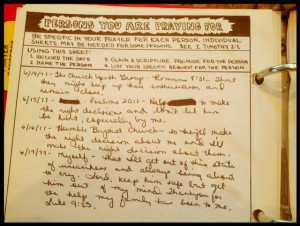 PERSONS YOU ARE PRAYING FOR
BE SPECIFIC IN YOUR PRAYER FOR EACH PERSON. INDIVIDUAL
SHEETS MAY BE NEEDED FOR SOME PERSONS. SEE I TIMOTHY 2:1
USING THIS SHEET:
1 RECORD THE DATE 3 CLAIM A SCRIPTURE PROMISE FOR THE PERSON
2 NAME THE PERSON 4 GIVE YOUR SPECIFIC REQUEST FOR THE PERSON
The Church Youth Group - Romans 8:31 - That
they might keep up their enthusiasm and
remain close.
6/15/77 - Psalms 20:1 - Help to make
the right decisions and don't let him
be hurt, especially by me.
6/16/77 - Baptist Church - to help make
the right decision about me and I'll
make the right decision about them.
6/17/77 - Myself - that I'll get out of this state
of and always being about
to cry. Lord, keep him safe but get
him out of my mind. Thankyou for
the help my family has been to me.
Luke 9:23.